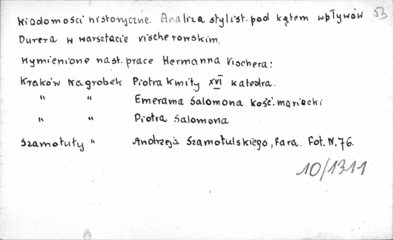 Wiadomości historyczne. Analiza stylist. pod kątem wpływów 53
Durera w warsztacie vischerowskim.
Wymienione nast. prace Hermanna Vischera:
Kraków Nagrobek Piotra Kmity XVI katedra.
" " Emerama Salomona kość. mariacki
" " Piotra Salomona
Szamotuły " Andrzeja Szamotulskiego, fara. fot. N. 76.
10/1311